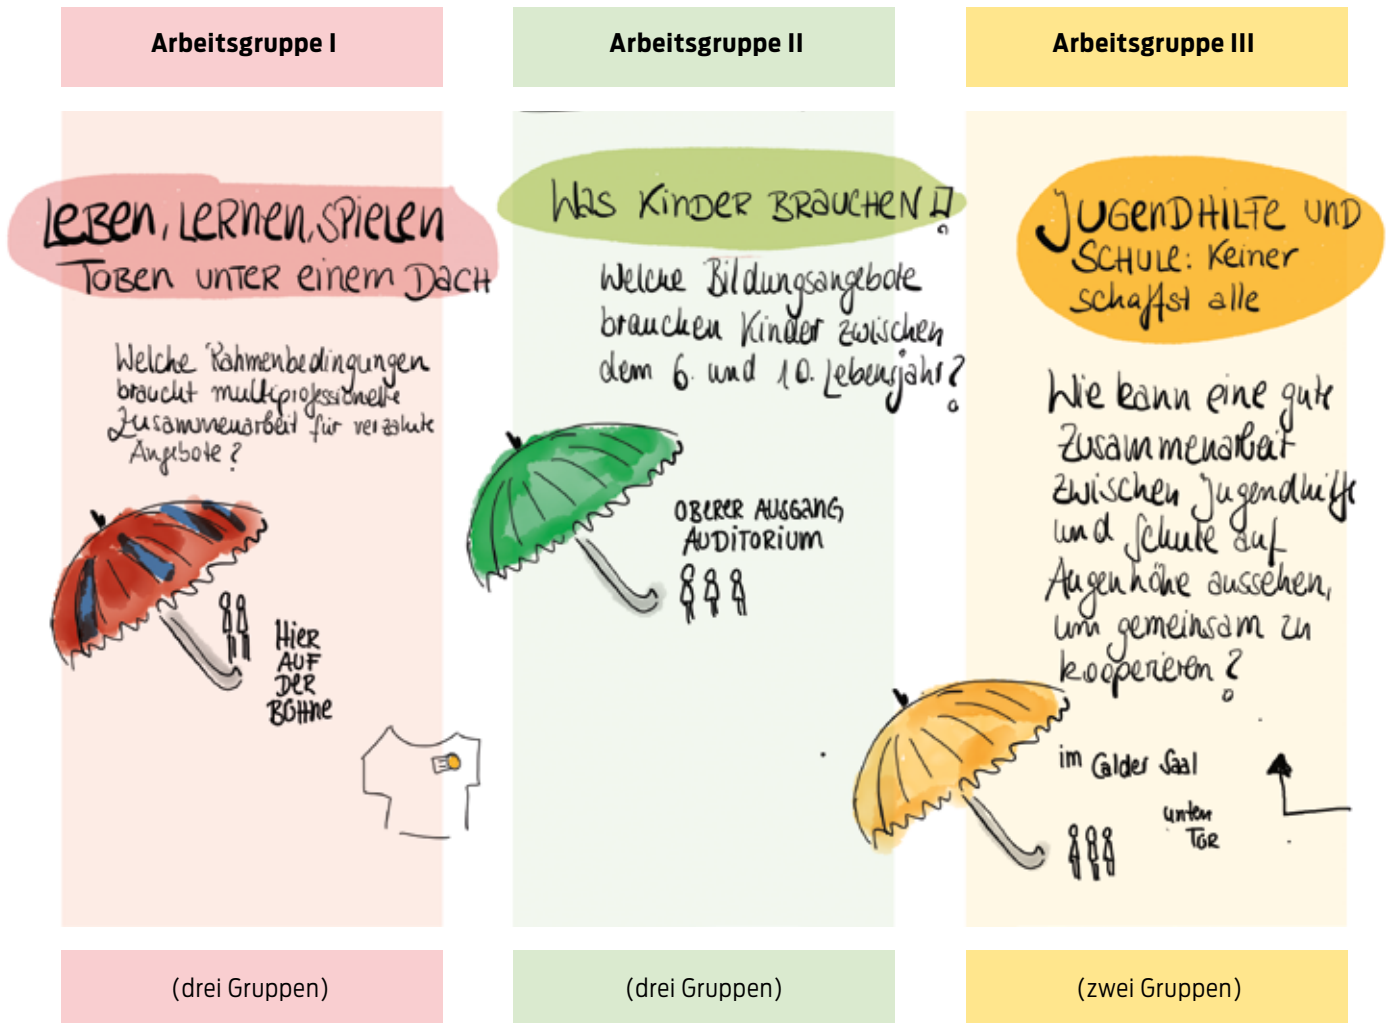 Arbeitsgruppe I
LEBEN, LERNEN, SPIELEN
TOBEN UNTER EINEM DACH
Welche Rahmenbedingungen
braucht multiprofessionelle
Zusammenarbeit für verzahnte
Angebote?
HIER
AUF
DER
BÜHNE
(drei Gruppen)
Arbeitsgruppe II
WAS KINDER BRAUCHEN!
Welche Bildungsangebote
brauchen Kinder zwischen
dem 6. und 10. Lebensjahr?
OBERER AUSGANG
AUDITORIUM
(drei Gruppen)
Arbeitsgruppe III
JUGENDHILFE UND
SCHULE: Keiner
schafft alle
Wie kann eine gute
Zusammenarbeit
zwischen Jugendhilfe
und Schule auf
Augenhöhe aussehen,
um gemeinsam zu
kooperieren?
im Calder Saal
unten
TÜR
(zwei Gruppen)